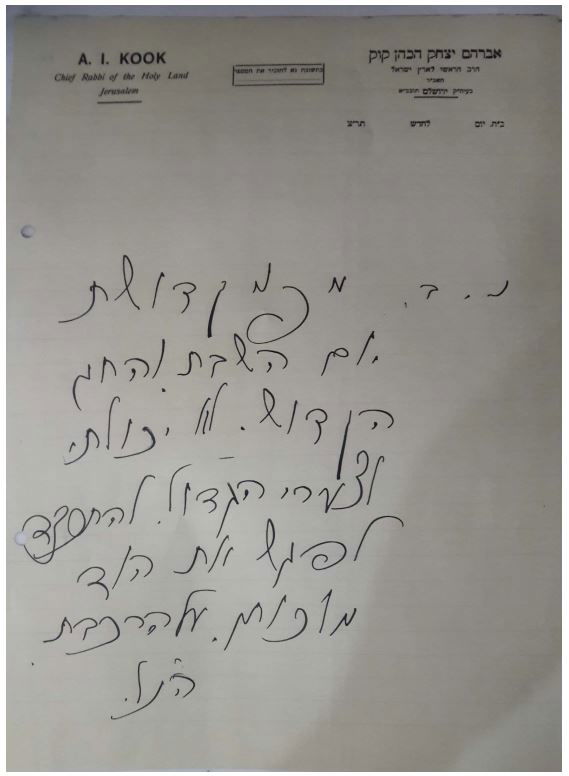 A. I. KOOK
Chief Rabbi of the Holy Land
Jerusalem
בתשובה נא להזכיר את המספר
אברהם יצחק הכהן קוק
הרב הראשי לארץ ישראל
בעיה״ק ירושלם תובב״א
ב״ה. יום לחדש תר״צ
נ. ב. מפני קדושת
יום השבת והחג
הקדוש, לא יכולתי
לצערי הגדול,
לפגש את הוד
על הרכבת
הנ״ל.